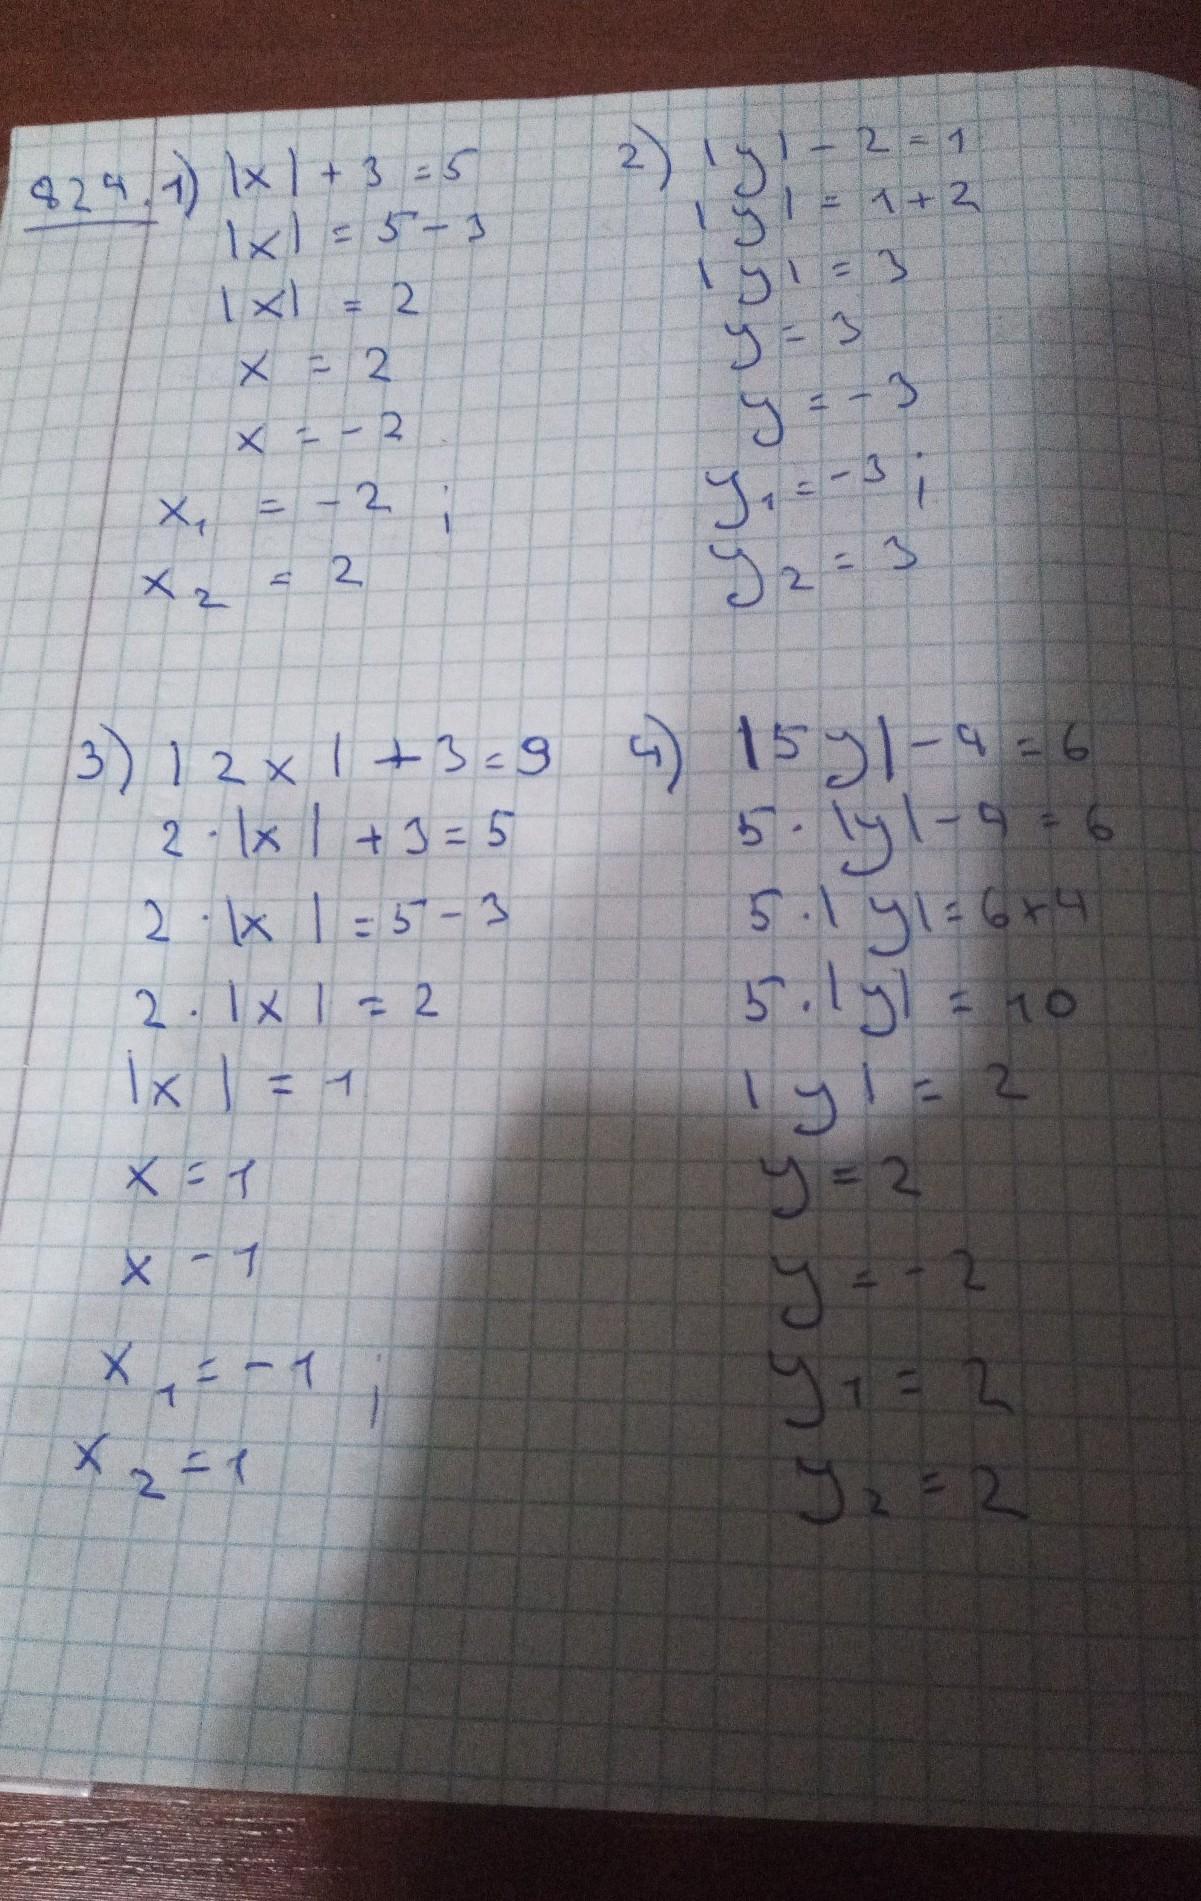 824. 1) |x| + 3 = 5
|x| = 5 - 3
|x| = 2
x = 2
x = -2
x₁ = -2 ;
x₂ = 2
2) |y| - 2 = 1
|y| = 1 + 2
|y| = 3
y = 3
y = -3
y₁ = -3 ;
y₂ = 3
3) |2x| + 3 = 9
2 · |x| + 3 = 5
2 · |x| = 5 - 3
2 · |x| = 2
|x| = 1
x = 1
x - 1
x₁ = -1 ;
x₂ = 1
4) |5y| - 4 = 6
5 · |y| - 4 = 6
5 · |y| = 6 + 4
5 · |y| = 10
|y| = 2
y = 2
y = -2
y₁ = 2
y₂ = 2